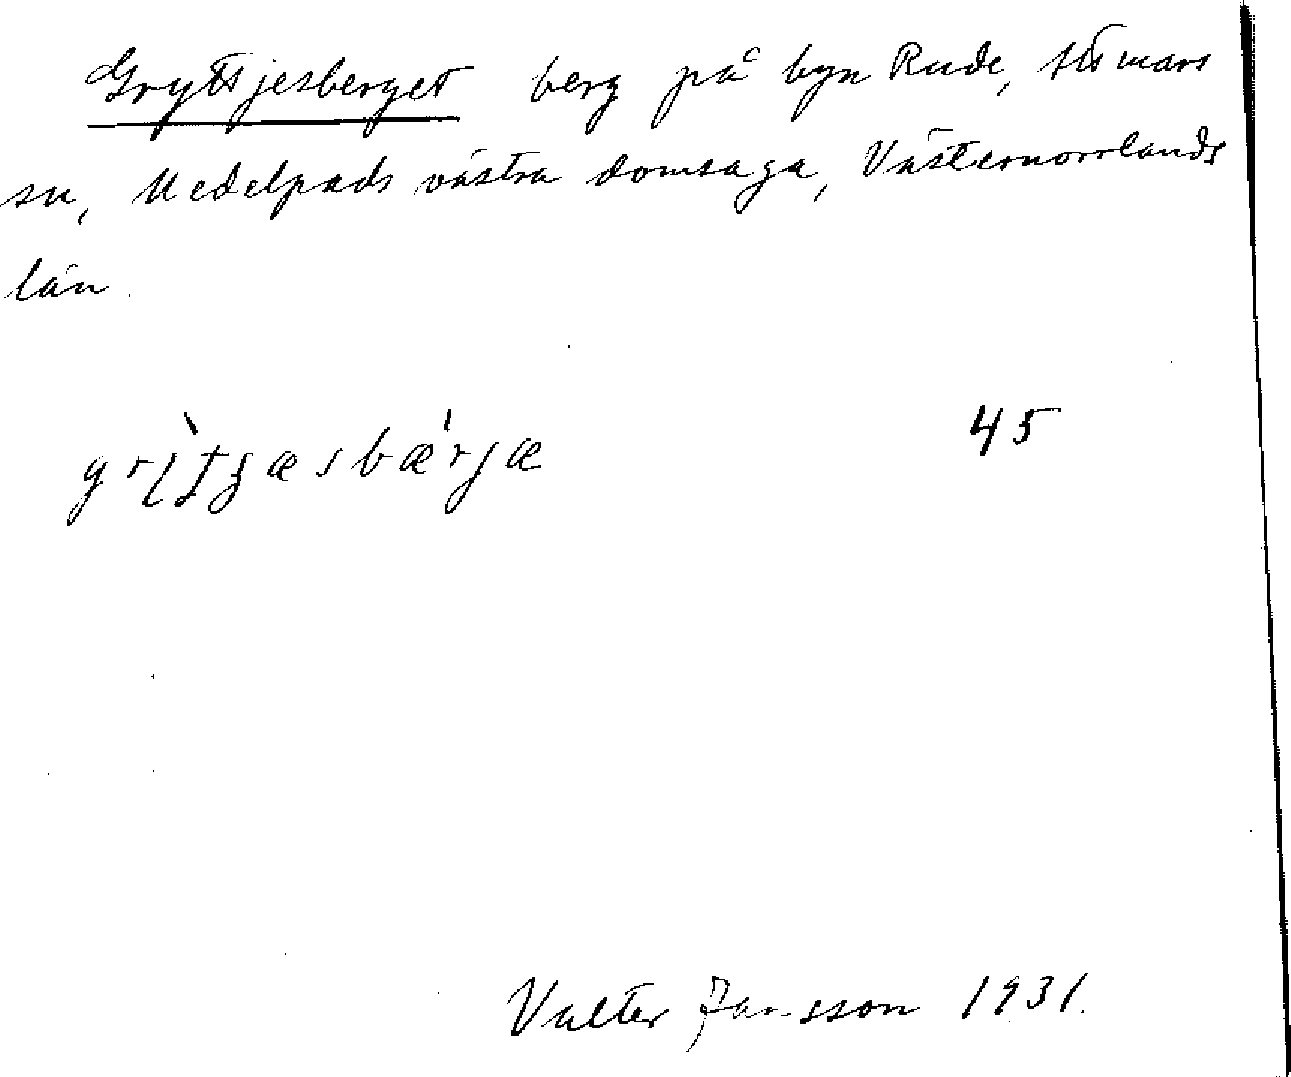 Gryttjesberget berg på byn Rude, Attmars
sn, Medelpads västra domsaga, Västernorrlands
län.
45
Valter Jansson 1931.